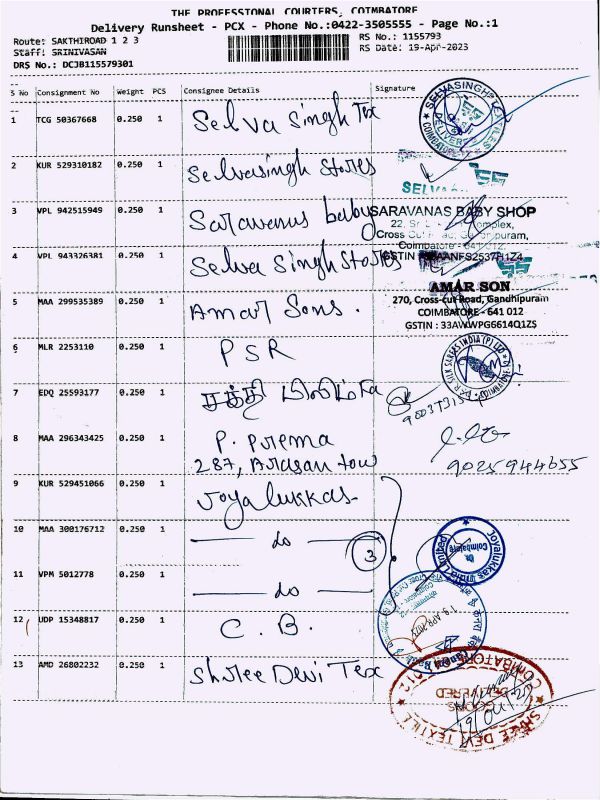 THE PROFESSIONAL COURIERS, COIMBATORE
Delivery Runsheet - PCX - Phone No.:0422-3505555 - Page No.:1
Route: SAKTHIROAD 1 2 3
Staff: SRINIVASAN
DRS No.: DCJB115579301
RS No.: 1155793
RS Date: 19-Apr-2023
S No Consignment No Weight PCS Consignee Details Signature
1 TCG 50367668 0.250 1 Selva Singh Tex
SELVASINGH TEXTILES
DELIVERY
COIMBATORE
2 KUR 529310182 0.250 1 Selvasingh Stores
SELVA
3 VPL 942515949 0.250 1 Saravanas baby
SARAVANAS BABY SHOP
Complex,
Cross Cut Road, Gandhipuram,
Coimbatore - 641 012.
4 VPL 943326381 0.250 1 Selva Singh Stores
AMAR SON
5 MAA 299535389 0.250 1 Amar Sons.
270, Cross-cut Road, Gandhipuram
COIMBATORE - 641 012
GSTIN : 33AWWPG6614Q1ZS
6 MLR 2253110 0.250 1 PSR
7 EDQ 25593177 0.250 1 சக்தி
8 MAA 296343425 0.250 1 P. Prema
287, Arasan tow
9025944655
9 KUR 529451066 0.250 1 Joyalukkas
10 MAA 300176712 0.250 1 do
3
Joyalukkas India Limited
Coimbatore
11 VPM 5012778 0.250 1 do
12 UDP 15348817 0.250 1 C. B.
19 APR 2023
13 AMD 26802232 0.250 1 Shree Devi Tex
SHREE DEVI TEXTILE
COIMBATORE - 012
GOODS
DELIVERED